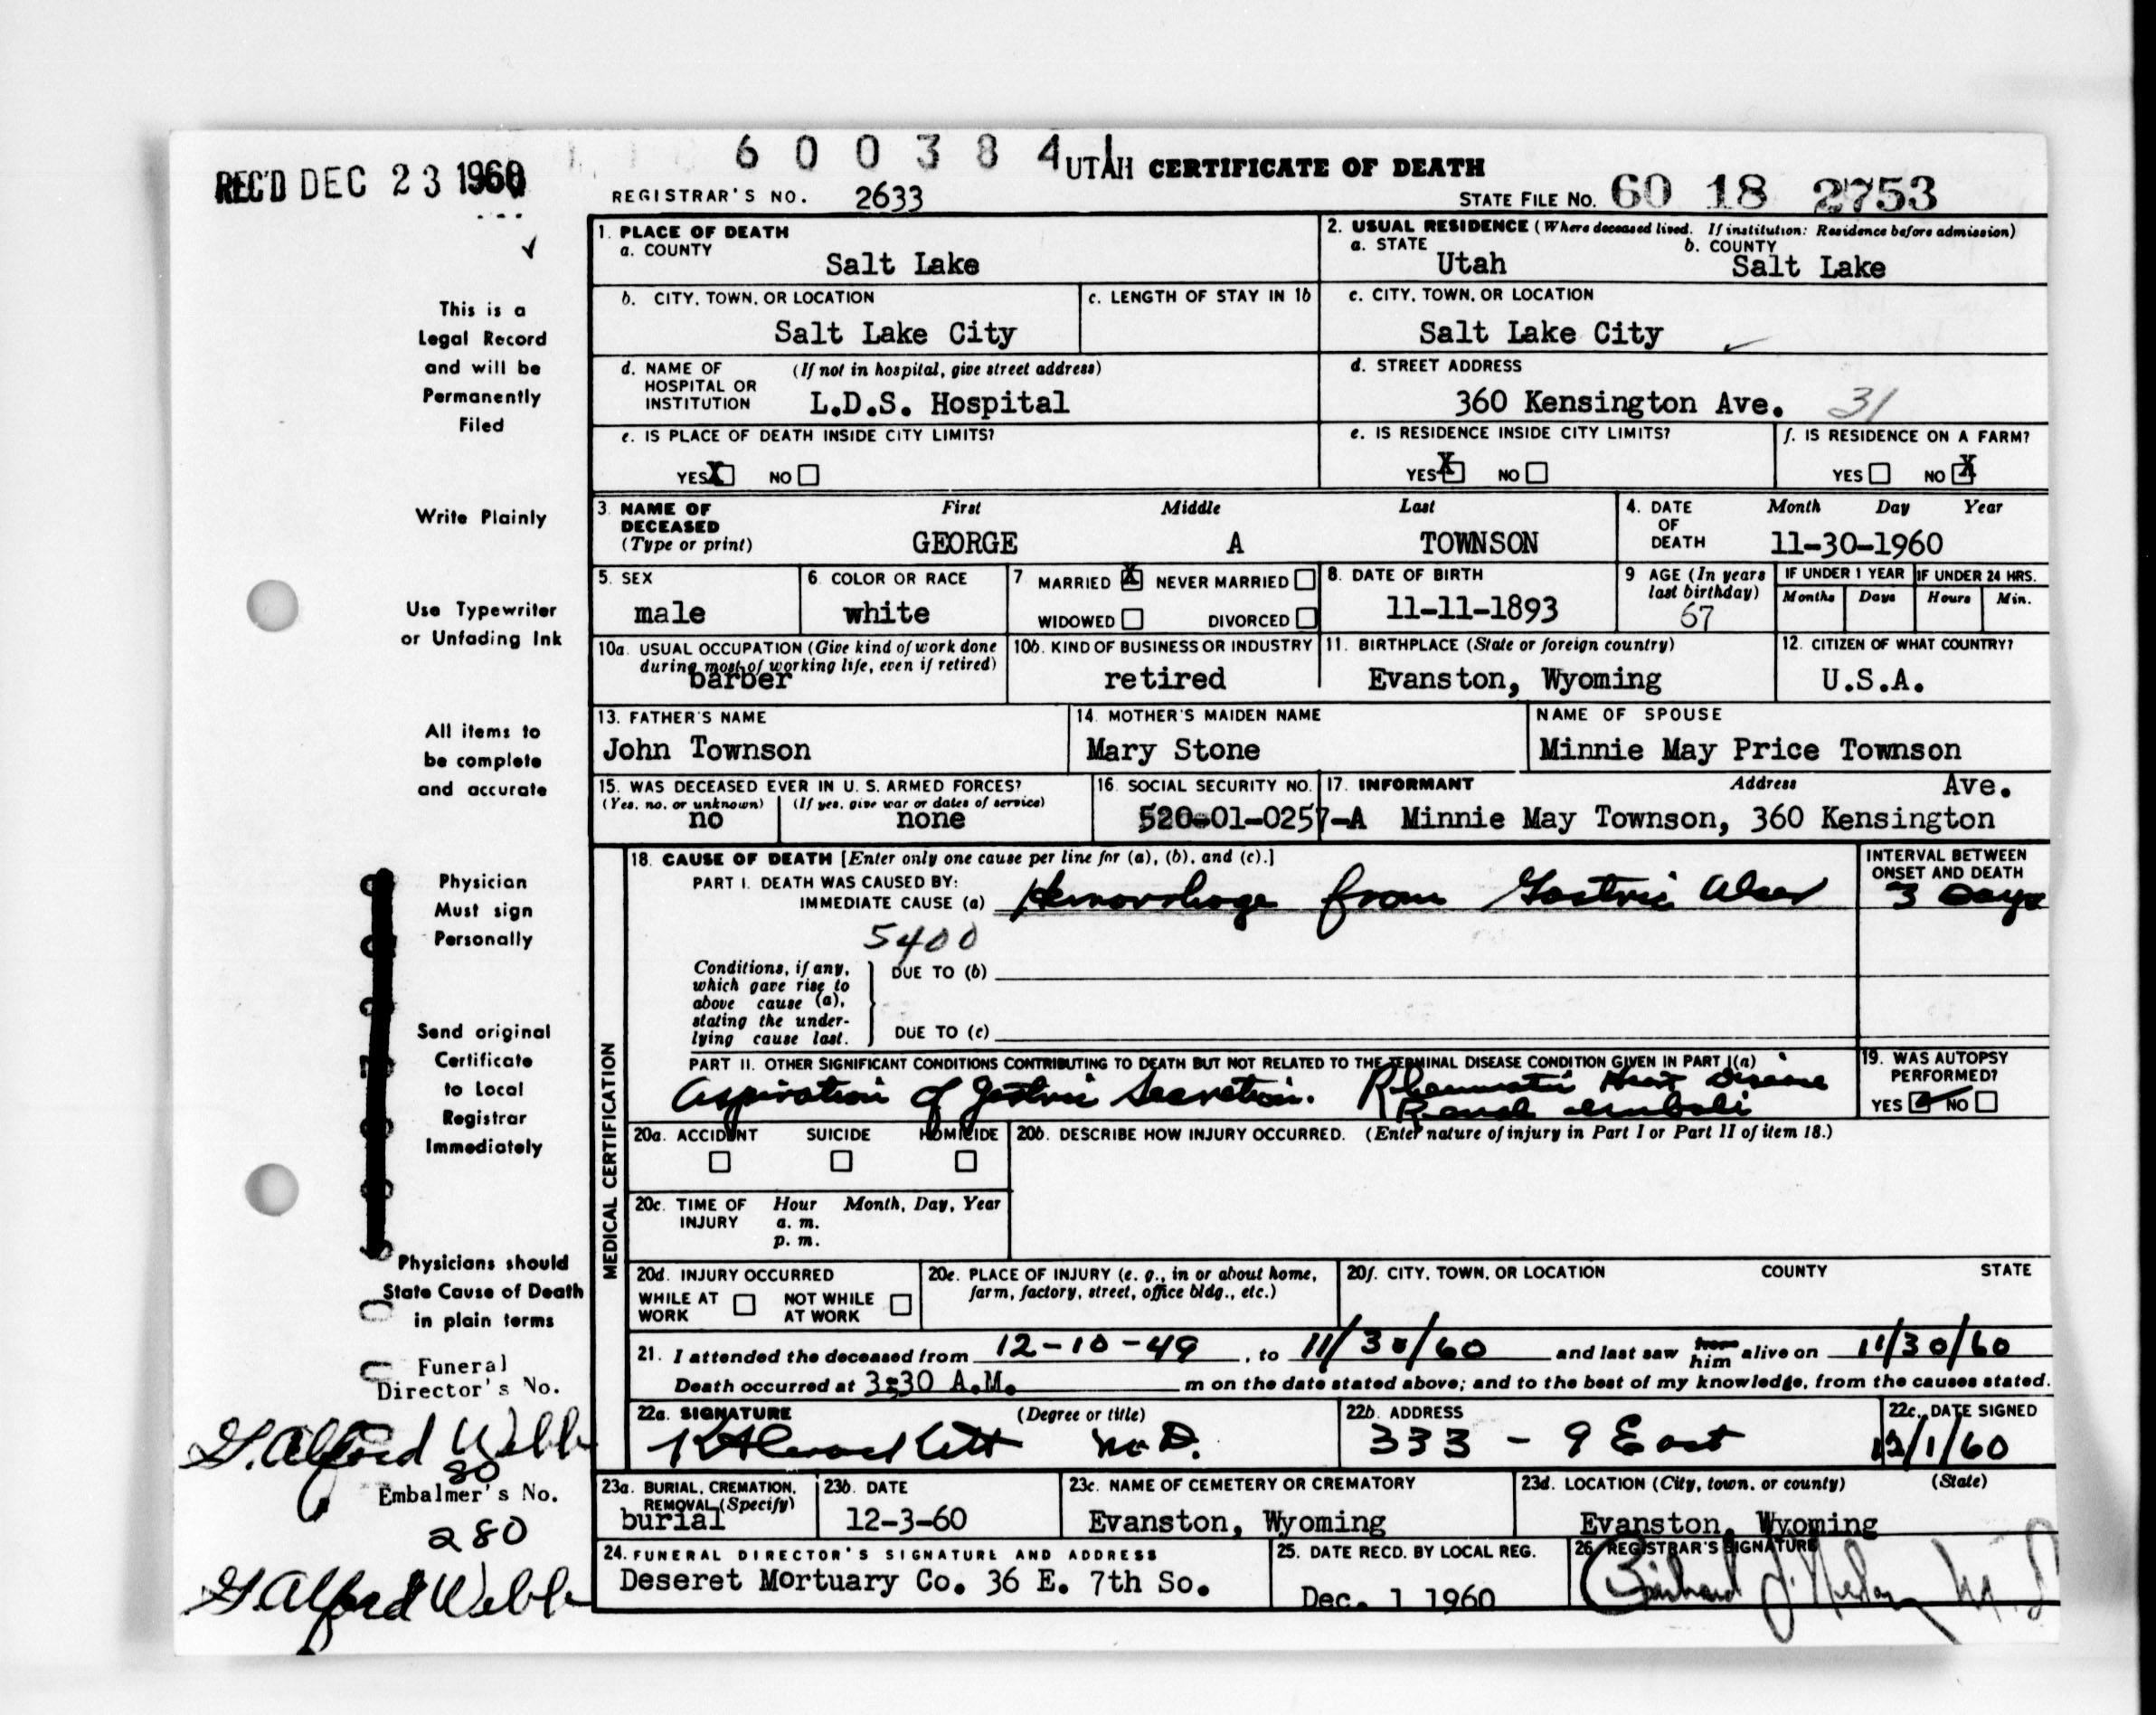 REC'D DEC 23 1960
6 0 0 3 8 4 1
UTAH CERTIFICATE OF DEATH
REGISTRAR'S NO. 2633
STATE FILE NO. 60 18 2753
This is a
Legal Record
and will be
Permanently
Filed
Write Plainly
Use Typewriter
or Unfading Ink
All items to
be complete
and accurate
Physician
Must sign
Personally
Send original
Certificate
to Local
Registrar
Immediately
Physicians should
State Cause of Death
in plain terms
Funeral
Director's No.
G. Alford Webb
80
Embalmer's No.
280
G. Alford Webb
1. PLACE OF DEATH
a. COUNTY
Salt Lake
2. USUAL RESIDENCE (Where deceased lived. If institution: Residence before admission)
a. STATE b. COUNTY
Utah Salt Lake
b. CITY, TOWN, OR LOCATION
Salt Lake City
c. LENGTH OF STAY IN 1b
c. CITY, TOWN, OR LOCATION
Salt Lake City
d. NAME OF (If not in hospital, give street address)
HOSPITAL OR
INSTITUTION L.D.S. Hospital
d. STREET ADDRESS
360 Kensington Ave. 31
e. IS PLACE OF DEATH INSIDE CITY LIMITS?
YES X NO
e. IS RESIDENCE INSIDE CITY LIMITS?
YES X NO
f. IS RESIDENCE ON A FARM?
YES NO X
3. NAME OF First Middle Last
DECEASED
(Type or print) GEORGE A TOWNSON
4. DATE Month Day Year
OF
DEATH 11-30-1960
5. SEX
male
6. COLOR OR RACE
white
7 MARRIED X NEVER MARRIED
WIDOWED DIVORCED
8. DATE OF BIRTH
11-11-1893
9 AGE (In years
last birthday)
67
IF UNDER 1 YEAR IF UNDER 24 HRS.
Months Days Hours Min.
10a. USUAL OCCUPATION (Give kind of work done
during most of working life, even if retired)
barber
10b. KIND OF BUSINESS OR INDUSTRY
retired
11. BIRTHPLACE (State or foreign country)
Evanston, Wyoming
12. CITIZEN OF WHAT COUNTRY?
U.S.A.
13. FATHER'S NAME
John Townson
14. MOTHER'S MAIDEN NAME
Mary Stone
NAME OF SPOUSE
Minnie May Price Townson
15. WAS DECEASED EVER IN U. S. ARMED FORCES?
(Yes, no, or unknown) (If yes, give war or dates of service)
no none
16. SOCIAL SECURITY NO.
520-01-0257-A
17. INFORMANT Address Ave.
Minnie May Townson, 360 Kensington
MEDICAL CERTIFICATION
18. CAUSE OF DEATH [Enter only one cause per line for (a), (b), and (c).]
PART I. DEATH WAS CAUSED BY:
IMMEDIATE CAUSE (a) Hemorrhage from Gastric Ulcer
INTERVAL BETWEEN
ONSET AND DEATH
3 Days
5400
Conditions, if any,
which gave rise to
above cause (a),
stating the under-
lying cause last.
DUE TO (b)
DUE TO (c)
PART II. OTHER SIGNIFICANT CONDITIONS CONTRIBUTING TO DEATH BUT NOT RELATED TO THE TERMINAL DISEASE CONDITION GIVEN IN PART I(a)
Aspiration of Gastric Secretion. Rheumatic Heart Disease
Renal emboli
19. WAS AUTOPSY
PERFORMED?
YES NO
20a. ACCIDENT SUICIDE HOMICIDE
20b. DESCRIBE HOW INJURY OCCURRED. (Enter nature of injury in Part I or Part II of item 18.)
20c. TIME OF Hour Month, Day, Year
INJURY a. m.
p. m.
20d. INJURY OCCURRED
WHILE AT NOT WHILE
WORK AT WORK
20e. PLACE OF INJURY (e. g., in or about home,
farm, factory, street, office bldg., etc.)
20f. CITY, TOWN, OR LOCATION COUNTY STATE
21. I attended the deceased from 12-10-49, to 11/30/60 and last saw him alive on 11/30/60
Death occurred at 3:30 A.M. m on the date stated above; and to the best of my knowledge, from the causes stated.
22a. SIGNATURE (Degree or title)
M.D.
22b. ADDRESS
333 - 9 East
22c. DATE SIGNED
12/1/60
23a. BURIAL, CREMATION,
REMOVAL (Specify)
burial
23b. DATE
12-3-60
23c. NAME OF CEMETERY OR CREMATORY
Evanston, Wyoming
23d. LOCATION (City, town, or county) (State)
Evanston, Wyoming
24. FUNERAL DIRECTOR'S SIGNATURE AND ADDRESS
Deseret Mortuary Co. 36 E. 7th So.
25. DATE RECD. BY LOCAL REG.
Dec. 1 1960
26. REGISTRAR'S SIGNATURE